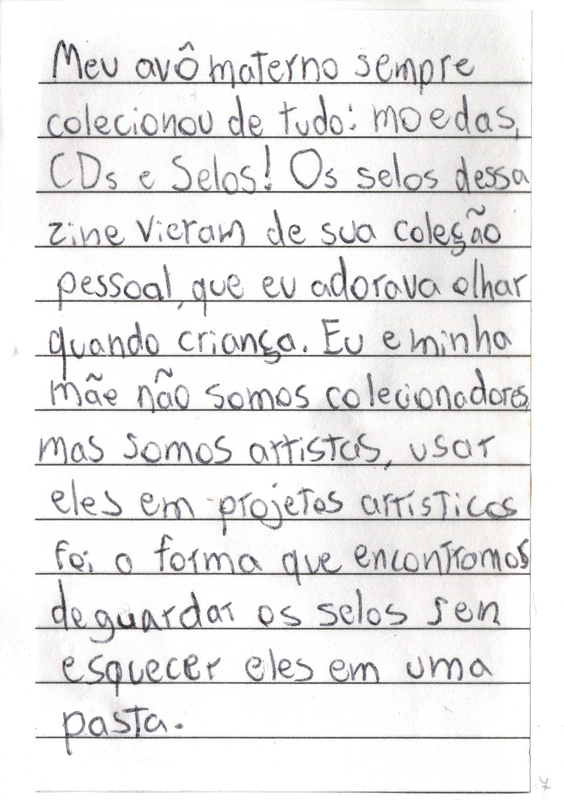 Meu avô materno sempre
colecionou de tudo: moedas,
CDs e Selos! Os selos dessa
zine vieram de sua coleção
pessoal, que eu adorava olhar
quando criança. Eu e minha
mãe não somos colecionadores,
mas somos artistas, usar
eles em projetos artísticos
foi a forma que encontramos
de guardar os selos sem
esquecer eles em uma
pasta.
7